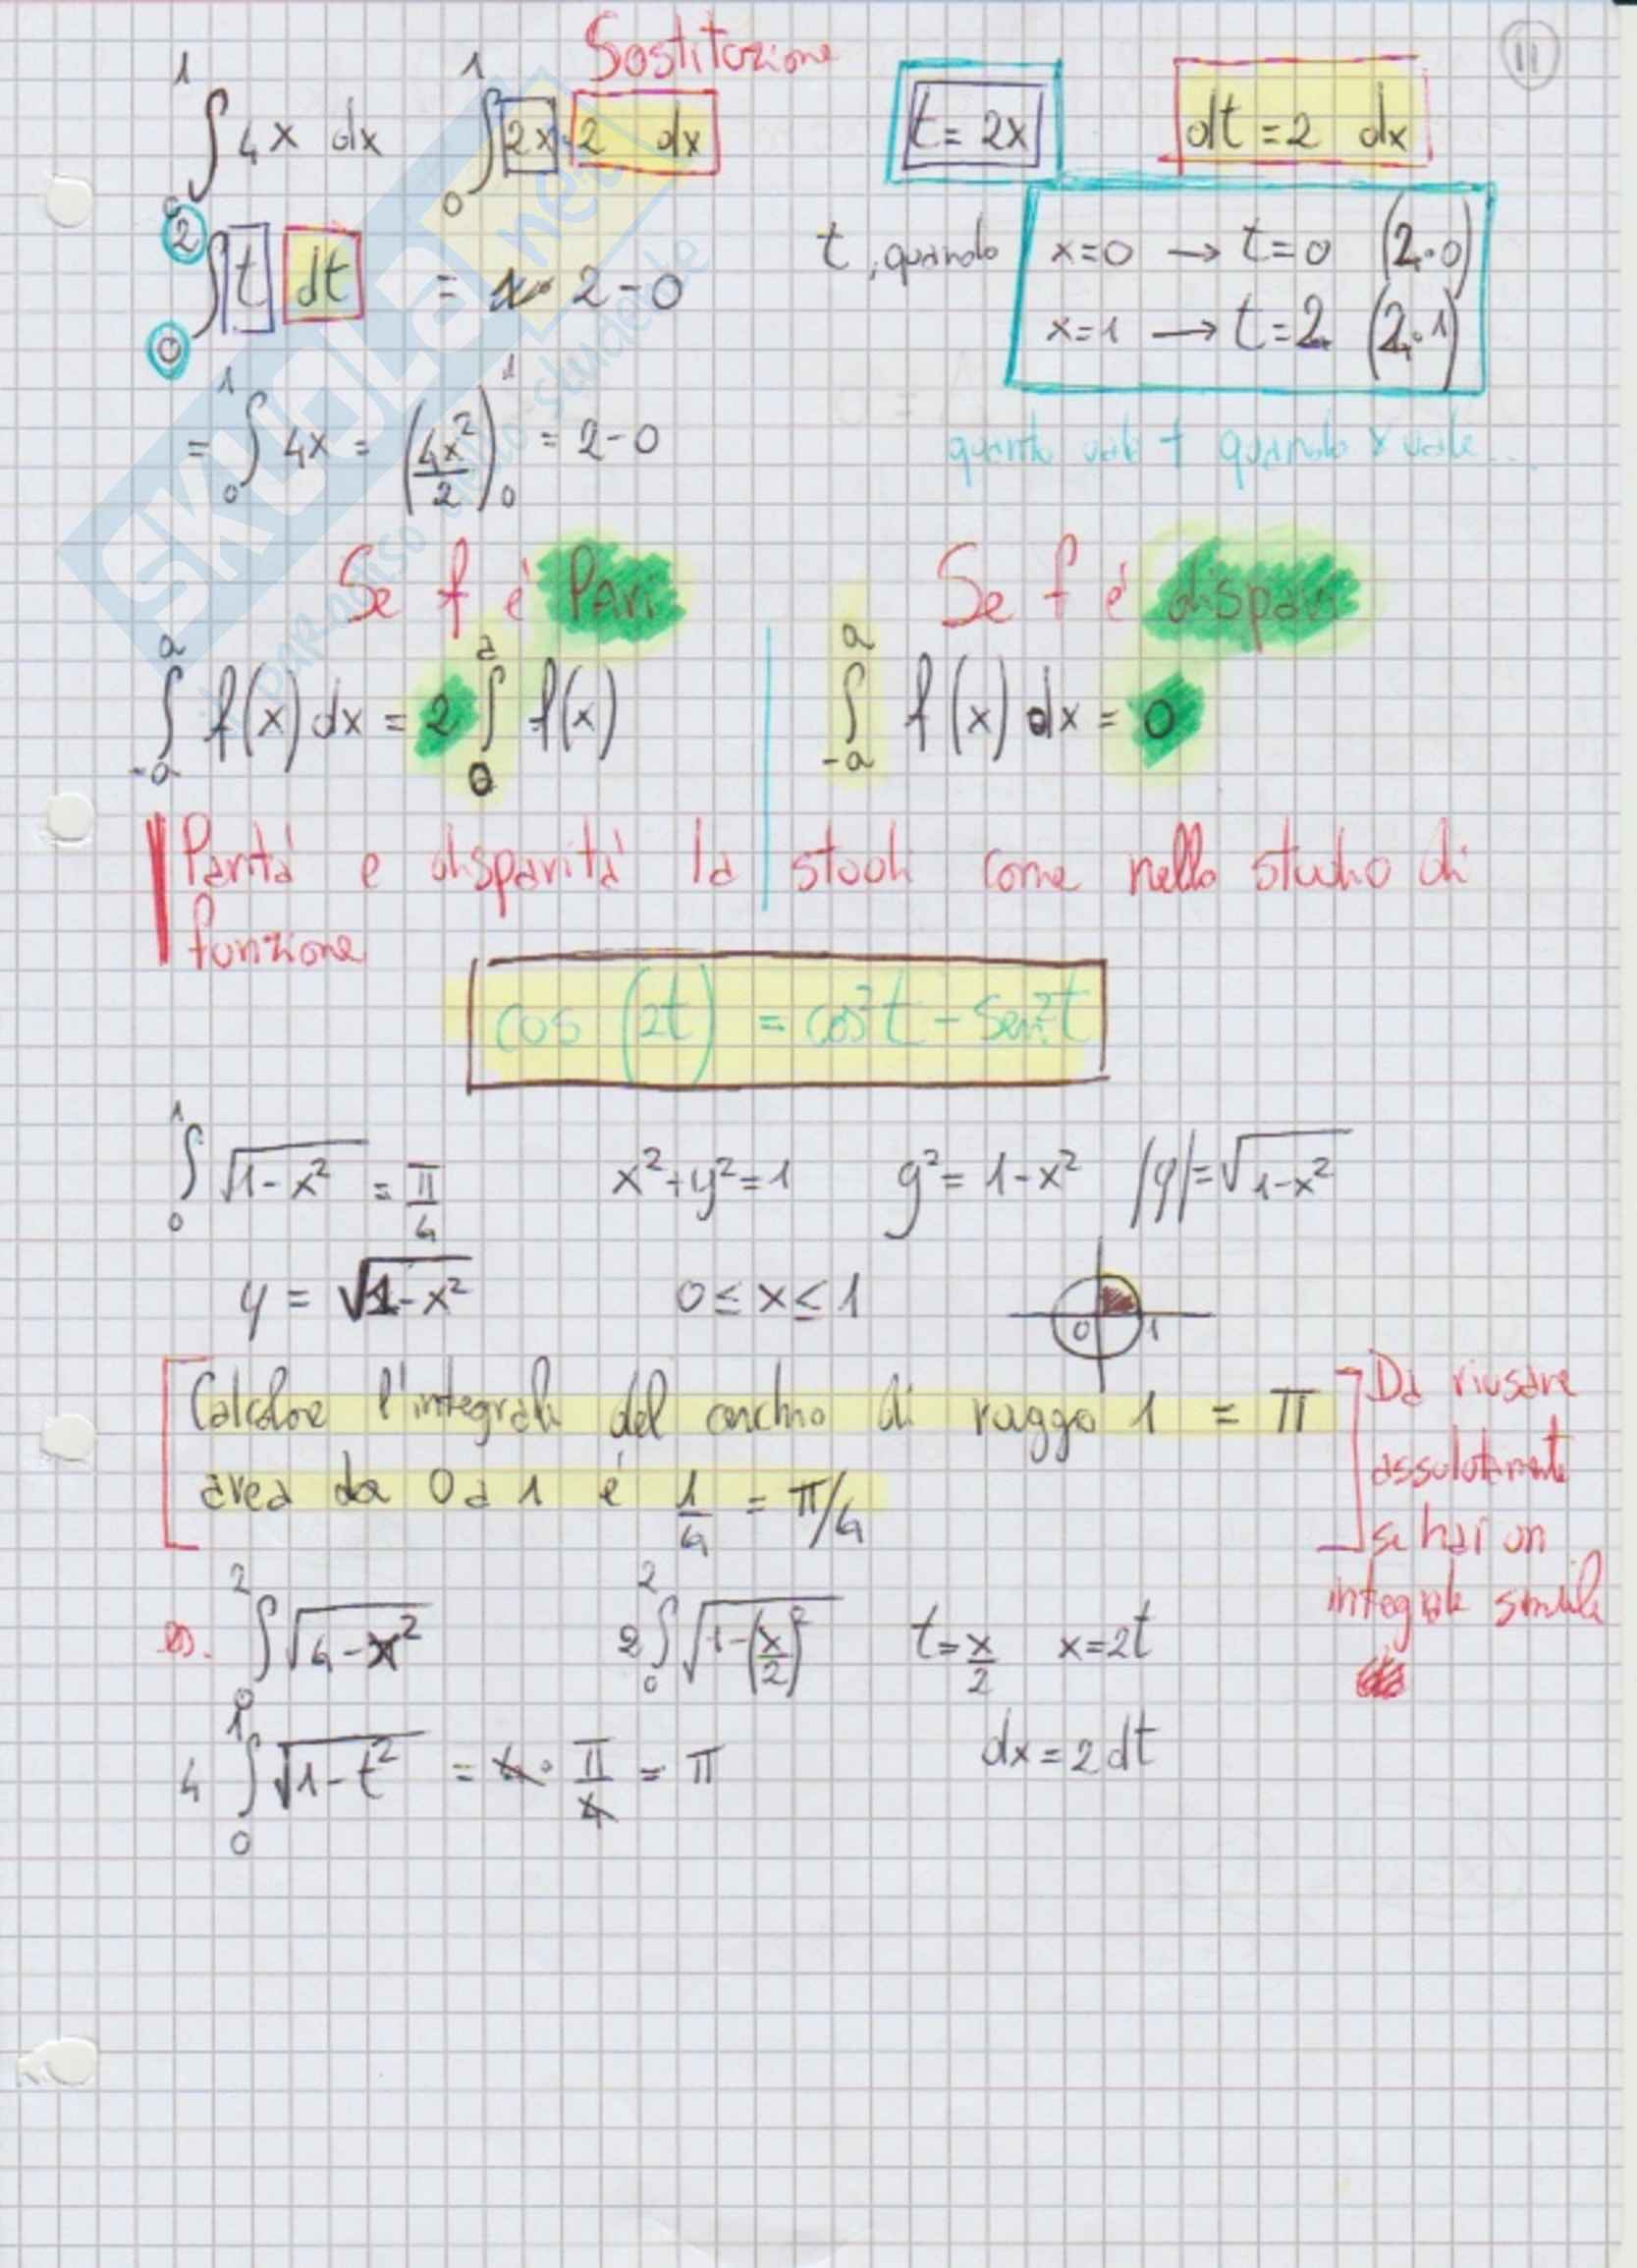 Sostituzione
11
∫₀¹ 4x dx   ∫₀¹ 2x·2 dx   t = 2x   dt = 2 dx
∫₀² t dt = 2-0   t, quando   x=0 → t=0 (2·0)
x=1 → t=2 (2·1)
= ∫₀¹ 4x = (4x²/2)₀¹ = 2-0   quanto vale t quando x vale...
SKUOLA.net
paradiso dello studente
Se f è Pari   Se f è dispari
∫₋ₐᵃ f(x) dx = 2 ∫₀ᵃ f(x)   ∫₋ₐᵃ f(x) dx = 0
Parità e disparità la studi come nello studio di
funzione
cos (2t) = cos²t - sen²t
∫₀¹ √(1-x²) = π/4   x²+y²=1   y² = 1-x²   |y| = √(1-x²)
y = √(1-x²)   0 ≤ x ≤ 1   0   1
Calcolare l'integrale del cerchio di raggo 1 = π
area da 0 a 1 è 1/4 = π/4
Da riusare
assolutamente
se hai un
integrale simile
es. ∫₀² √(4-x²)   2∫₀² √(1-(x/2)²)   t = x/2   x=2t
4 ∫₀¹ √(1-t²) = 4 · π/4 = π   dx = 2 dt